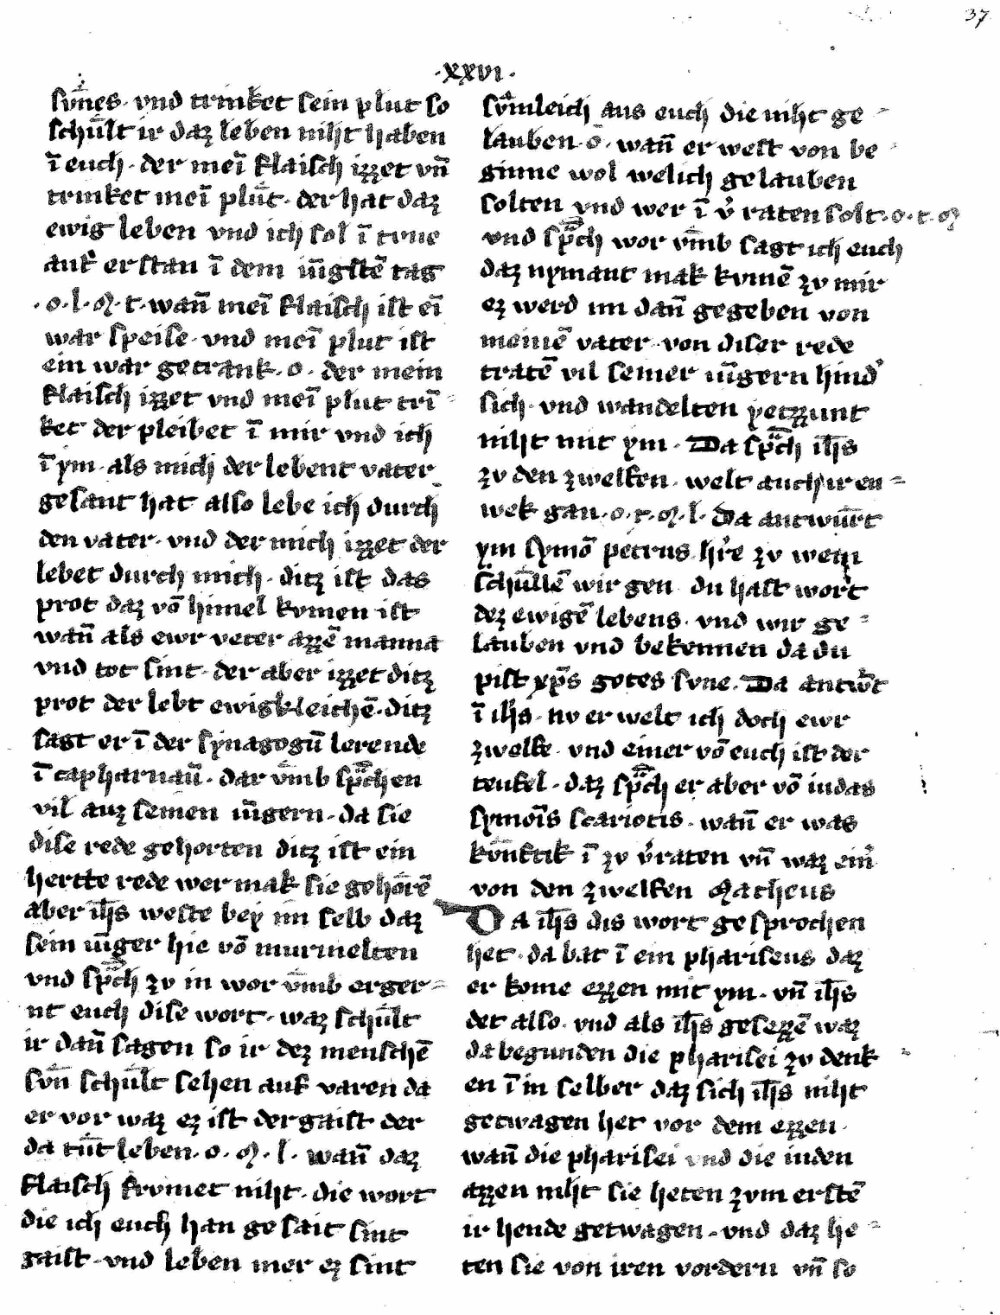 37
·xxvi·
svnes· vnd trinket sein plut so
schult ir daz leben niht haben
ī euch· der meī flaisch izzet vn̄
trinket meī plut· der hat daz
ewig leben vnd ich sol ī trvne
auf erstan ī dem iūgstē tag
·o·l·m·t· wan̄ meī flaisch ist eī
war speise· vnd meī plut ist
ein war getrank· o· der mein
flaisch izzet vnd meī plut trī=
ket der pleibet ī mir vnd ich
ī ym· als mich der lebent vater
gesant hat also lebe ich durch
den vater· vnd der mich izzet der
lebet durch mich· ditz ist das
prot daz vō himel kvmen ist
wan̄ als ewr veter azzē manna
vnd tot sint· der aber izzet ditz
prot der lebt ewigkleichē· ditz
sagt er ī der synagogū lerende
ī capharnaū· dar vmb sprachen
vil auz seinen iūgern· da sie
dise rede gehorten ditz ist ein
hertte rede wer mak sie gehorē
aber ih̄s weste bey im selb daz
sein iūger hie vō murmelten
vnd sprach zv in wor vmb erger=
nt euch dise wort· waz schult
ir dan̄ sagen so ir dez menschē
svn schult sehen auf varen da
er vor waz ez ist der gaist der
da tut leben· o· m· l· wan̄ daz
flaisch frvmet niht· die wort
die ich euch han gesait sint
gaist· vnd leben mer ez sint
svmleich aus euch die niht ge=
lauben· o· wan̄ er west von be=
ginne wol welich gelauben
solten vnd wer ī v̓raten solt·o·t·m
vnd sprach wor vmb sagt ich euch
daz nymant mak kvmē zv mir
ez werd im dan̄ gegeben von
meinē vater· von diser rede
tratē vil seiner iūgern hind̓
sich· vnd wandelten yetzunt
niht mit ym· Da sprach ih̄s
zv den zwelfen· welt auch ir en=
wek gan·o·t·m·l· Da antwurt
ym symō petrus h̓re zv wem
schullē wir gen du hast wort
dez ewigē lebens· vnd wir ge=
lauben vnd bekennen da du
pist xp̄s gotes svne· Da antw̓t
ī ih̄s· nv er welt ich doch ewr
zwelfe· vnd einer vō euch ist der
teufel· daz sprach er aber vō iudas
symoīs scariotis· wan̄ er was
kvnftik ī zv v̓raten vn̄ waz ein̓
von den zwelfen Matheus
DA ih̄s dis wort gesprochen
het· da bat ī ein phariseus daz
er kome ezzen mit ym· vn̄ ih̄s
det also· vnd als ih̄s gesezzē waz
da begunden die pharisei zv denk
en ī in selber daz sich ih̄s niht
getwagen het vor dem ezzen·
wan̄ die pharisei vnd die iuden
azzen niht sie heten zvm erstē
ir hende getwagen· vnd daz he=
ten sie von iren vordern vn̄ so